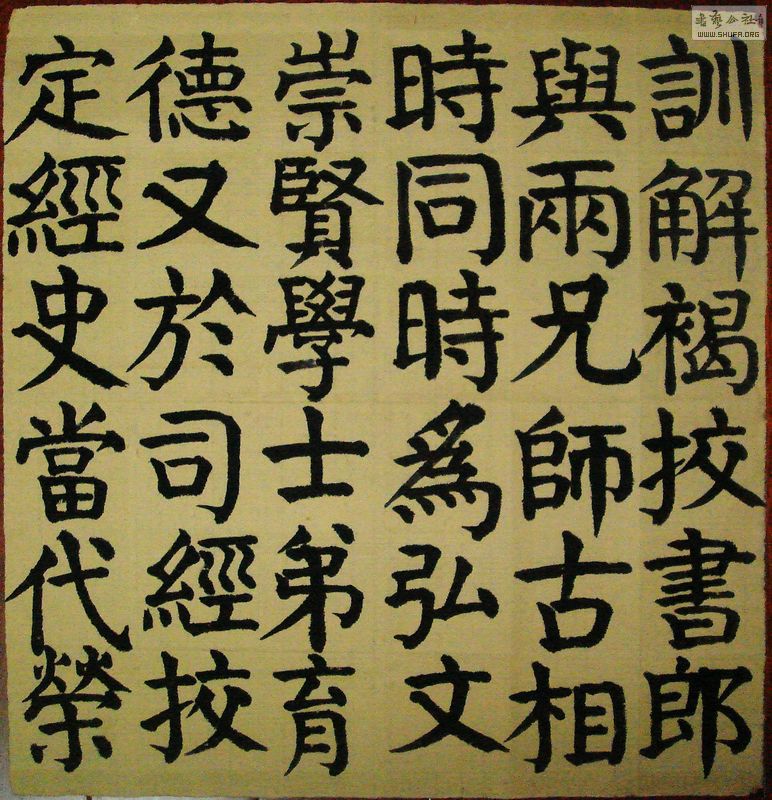 訓解褐挍書郎
與兩兄師古相
時同時爲弘文
崇賢學士弟育
德又於司經挍
定經史當代榮
WWW.SHUFA.ORG